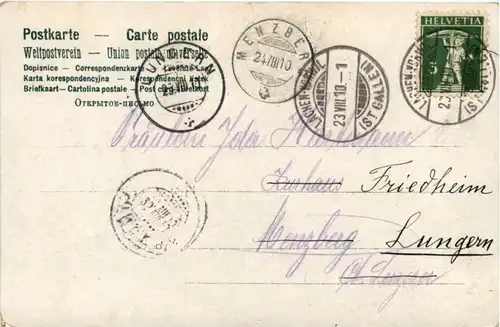 Postkarte - Carte postale
Weltpostverein - Union postale universelle
Dopisnice - Correspondenzkarte
Karta korespondencyjna - Korespondenčni listek
Briefkaart - Cartolina postale
Открытое письмо
HELVETIA
5
MENZBERG
24.VIII.10
23.VIII.10-1
(ST. GALLEN)
23
Fräulein Ida
Kurhaus Friedheim
Menzberg Lungern
Ct. Luzern